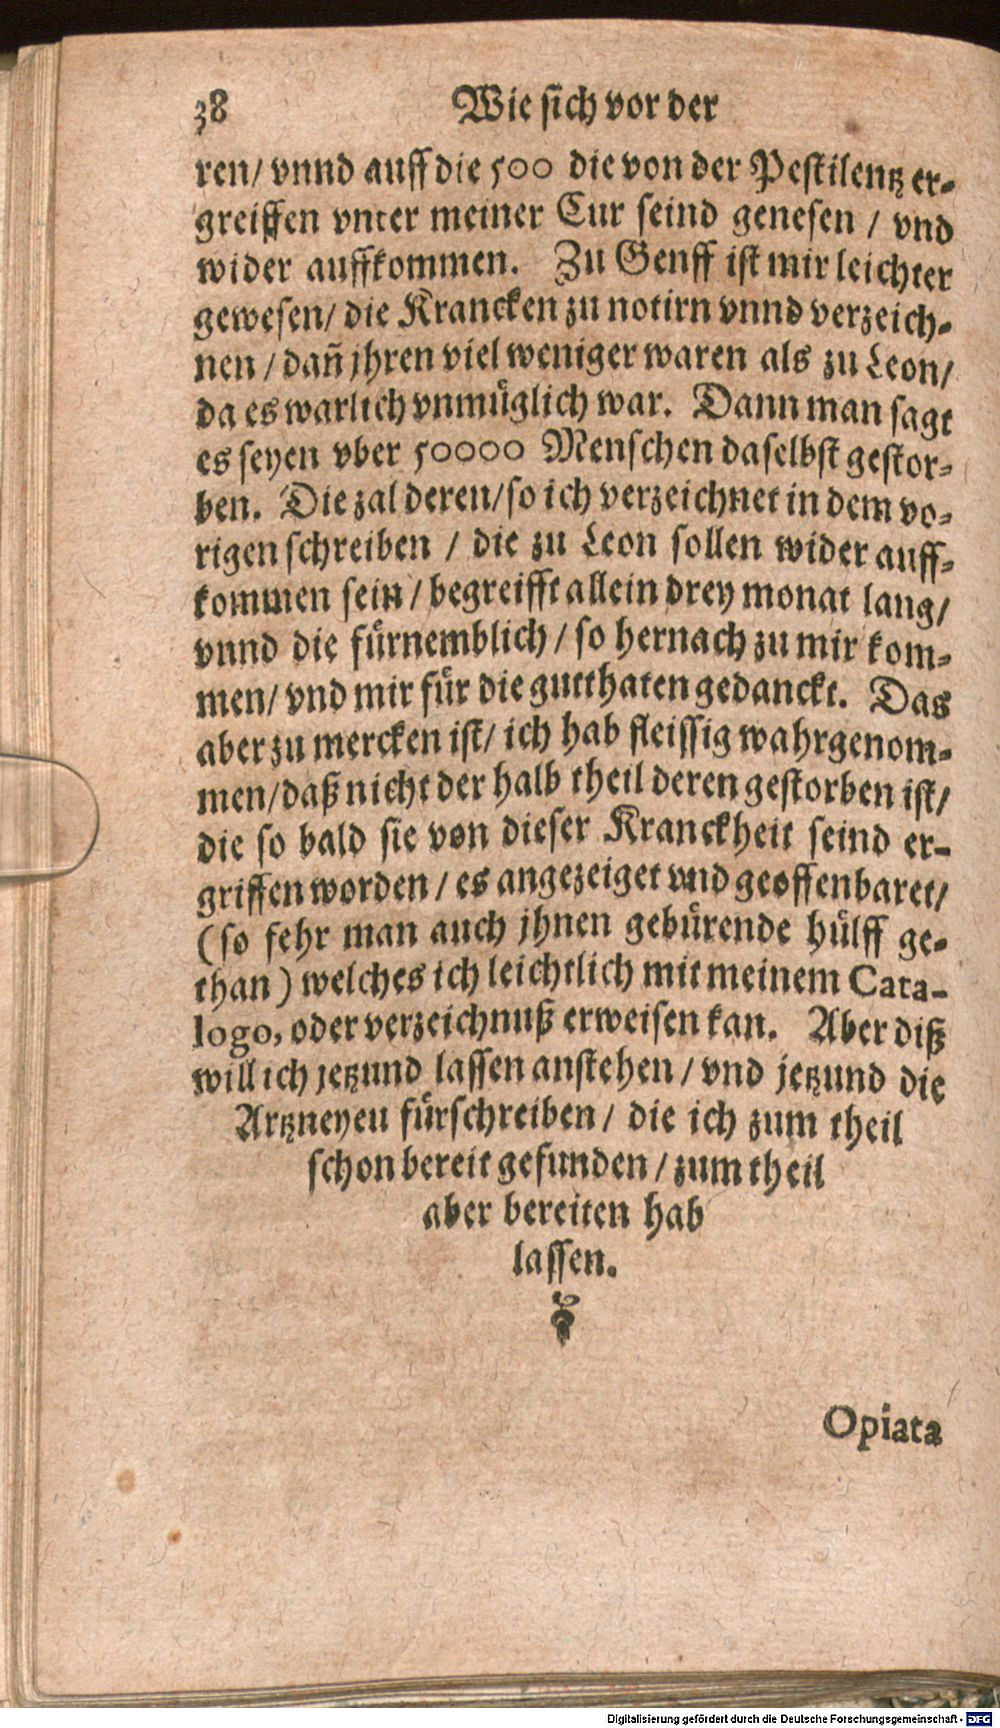 38 Wie sich vor der
ren/ vnnd auff die 500 die von der Pestilentz er-
greiffen vnter meiner Cur seind genesen / vnd
wider auffkommen. Zu Genff ist mir leichter
gewesen/ die Krancken zu notirn vnnd verzeich-
nen / dañ jhren viel weniger waren als zu Leon/
da es warlich vnmüglich war. Dann man sagt
es seyen vber 50000 Menschen daselbst gestor-
ben. Die zal deren/ so ich verzeichnet in dem vo-
rigen schreiben / die zu Leon sollen wider auff-
kommen sein / begreifft allein drey monat lang/
vnnd die fürnemblich / so hernach zu mir kom-
men/ vnd mir für die gutthaten gedanckt. Das
aber zu mercken ist/ ich hab fleissig wahrgenom-
men/ daß nicht der halb theil deren gestorben ist/
die so bald sie von dieser Kranckheit seind er-
griffen worden / es angezeiget vnd geoffenbaret/
(so fehr man auch jhnen gebürende hülff ge-
than) welches ich leichtlich mit meinem Cata-
logo, oder verzeichnuß erweisen kan. Aber diß
will ich jetzund lassen anstehen / vnd jetzund die
Artzneyeu fürschreiben / die ich zum theil
schon bereit gefunden / zum theil
aber bereiten hab
lassen.
Opiata
Digitalisierung gefördert durch die Deutsche Forschungsgemeinschaft - DFG